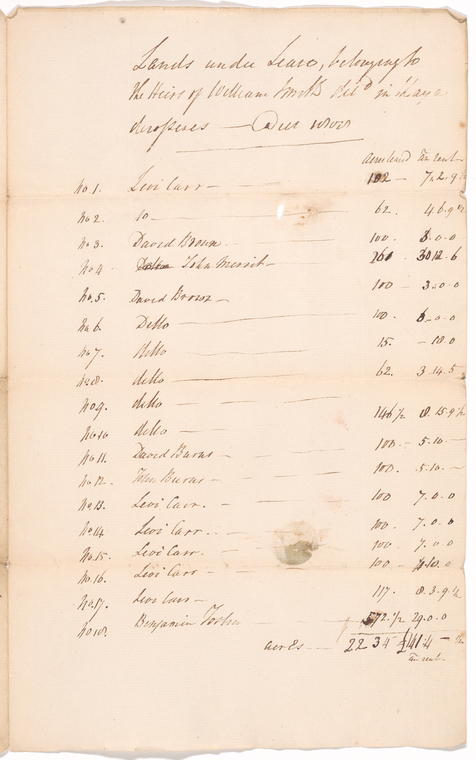 Lands under Lease, belonging to
the Heirs of William Smith dec'd in
Decr 1808
Acres land An rent
No 1. Levi Carr 102 7.2.9½
No 2. Do 62. 4.6.9½
No 3. David Brown 100. 3.0.0
No 4. John Merrit 260 30.12.6
No 5. David Brown 100 3.0.0
No 6. Ditto 100. 6.0.0
No 7. ditto 15. 18.0
No 8. ditto 62. 3.14.5
No 9. ditto 146½ 8.15.9½
No 10 ditto 100 5.10
No 11. David Burns 100. 5.10
No 12. John Burns 100 7.0.0
No 13. Levi Carr. 100. 7.0.0
No 14 Levi Carr. 100 7.0.0
No 15. Levi Carr. 100 10.0
No 16. Levi Carr 117. 8.3.9½
No 17. Levi Carr 572.½ 29.0.0
No 18. Benjamin
acres 2234 £141.4
An rent